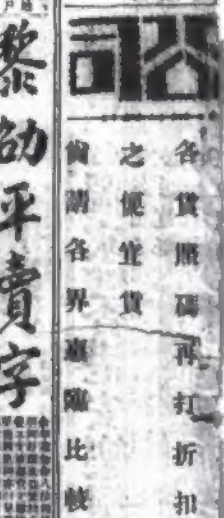 公司
各貨照碼再打折扣
之便宜貨
尚請各界惠臨比較
黎劭平賣字